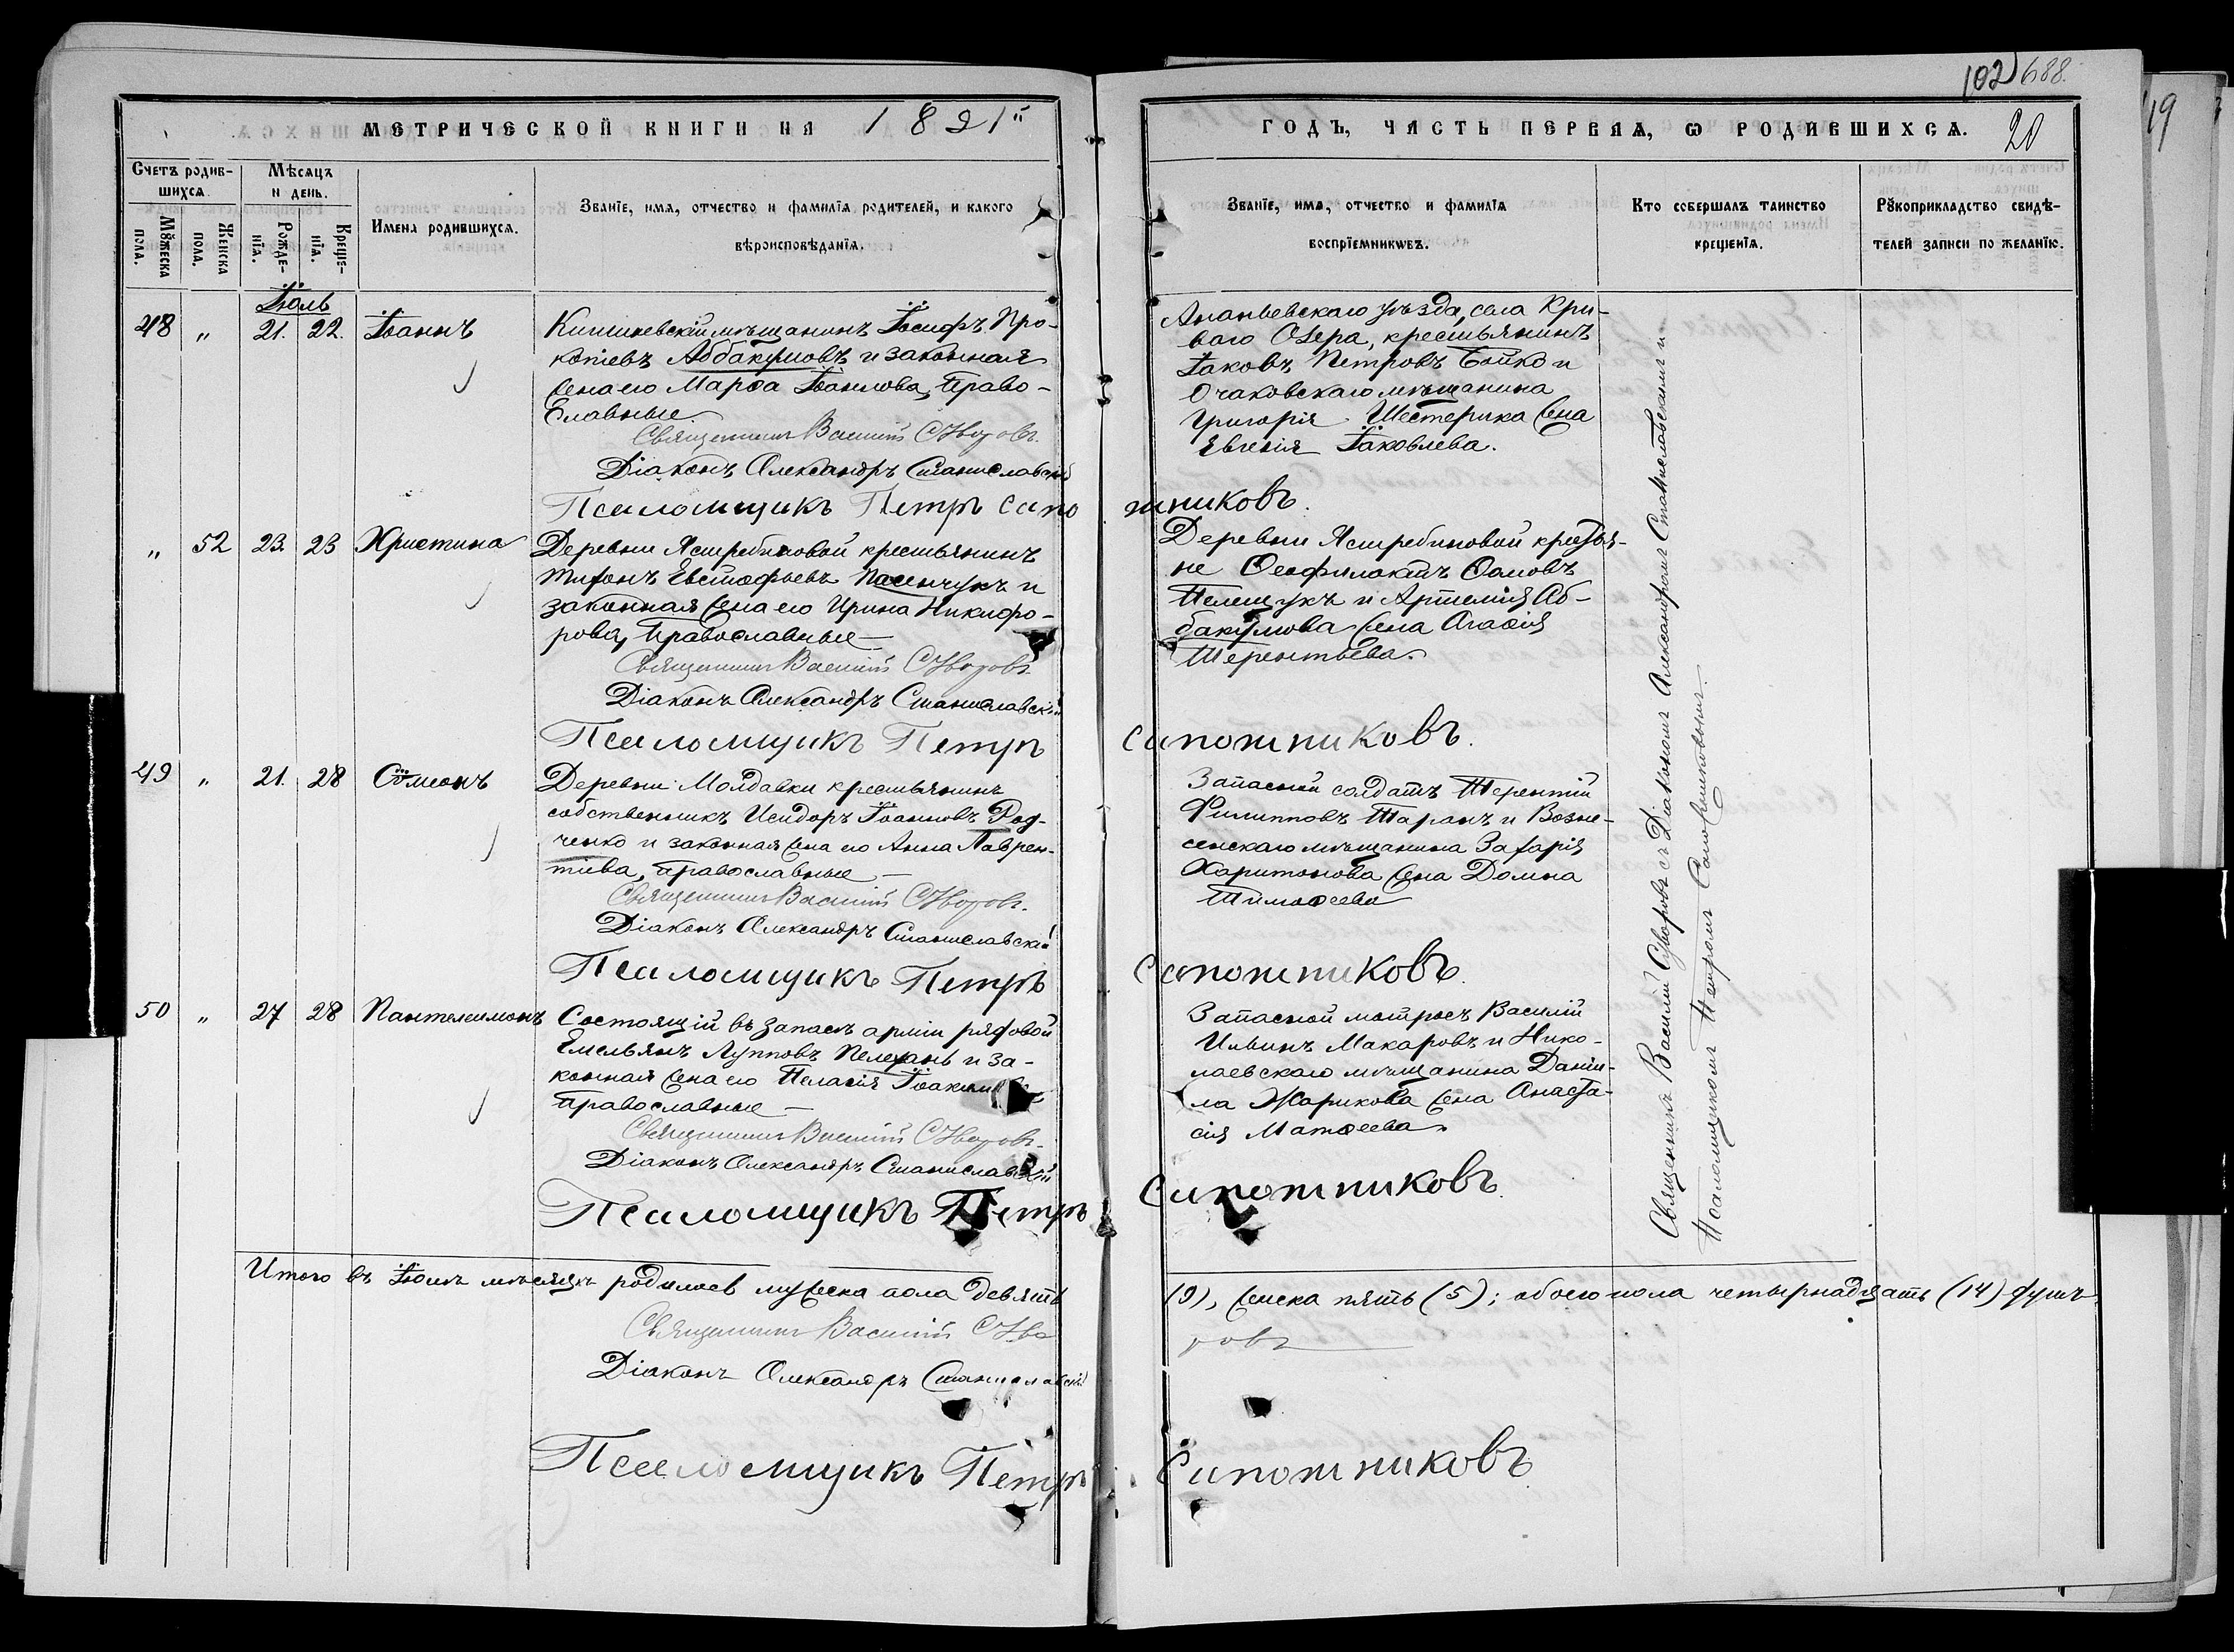 102) 688.
МЕТРИЧЕСКОЙ КНИГИ НА 1891й
ГОДЪ, ЧАСТЬ ПЕРВАЯ, Ѡ РОДИВШИХСЯ. 20
19
Счетъ родив-
шихся.
Мѣсяцъ
и день.
Мꙋжеска
пола.
Женска
пола.
Рожде-
нїя.
Креще-
нїя.
Имена родившихся.
Званїе, имя, отчество и фамилїя родителей, и какого
вѣроисповѣданїя.
Званїе, имя, отчество и фамилїя
воспрїемникѡвъ.
Кто совершалъ таинство
крещенїя.
Рꙋкоприкладство свидѣ-
телей записи по желанїю.
Іюль
48 " 21. 22. Іоаннъ
Кишиневскій мѣщанинъ Іосифъ Про-
копіевъ Аббакумовъ и законная
жена его Марѳа Іоаннова, Право-
славные
Священникъ Василій Суворовъ.
Діаконъ Александръ Станиславскій
Псаломщикъ Петръ Сапо
жниковъ.
Ананьевскаго уѣзда, села Кри-
ваго Озера, крестьянинъ
Іаковъ Петровъ Бойко и
Очаковскаго мѣщанина
Григорія Шестерика жена
Евгенія Іаковлева.
" 52 23. 23 Христина
Деревни Ястребиновой крестьянинъ
Тихонъ Евстафьевъ и
законная жена его Ирина Никифо-
рова, Православные
Священникъ Василій Суворовъ.
Діаконъ Александръ Станиславскій
Псаломщикъ Петръ
Сапожниковъ.
Деревни Ястребиновой крестья-
не Ѳеофилактъ Ѳомовъ
Пелещукъ и Артемія Аб-
бакумова жена Агаѳія
Терентьева.
49 " 21. 28 Сѵмеонъ
Деревни Молдавки крестьянинъ
собственникъ Исидоръ Іоанновъ Рад-
ченко и законная жена его Анна Лаврен-
тіева, православные
Священникъ Василій Суворовъ.
Діаконъ Александръ Станиславскій
Псаломщикъ Петръ
Сапожниковъ.
Запасный солдатъ Терентій
Филипповъ Таранъ и Возне-
сенскаго мѣщанина Захарія
Харитонова жена Домна
Тимоѳеева
50 " 27 28 Пантелеимонъ
Состоящій въ запасѣ арміи рядовой
Емельянъ Лупповъ Пелехань и за-
конная жена его Пелагія
православные
Священникъ Василій Суворовъ.
Діаконъ Александръ Станиславскій
Псаломщикъ Петръ
Сапожниковъ.
Запасной матросъ Василій
Ильинъ Макаровъ и Нико-
лаевскаго мѣщанина Даніи-
ла Жарикова жена Анаста-
сія Матѳеева.
Священникъ Василій Суворовъ съ Діакономъ Александромъ Станиславскимъ и
Псаломщикомъ Петромъ Сапожниковымъ.
Итого въ Іюлѣ мѣсяцѣ родилось мужеска пола девять
(9), женска пять (5); обоего пола четырнадцать (14) душъ
Священникъ Василій Суво
ровъ
Діаконъ Александръ Станиславскій
Псаломщикъ Петръ
Сапожниковъ